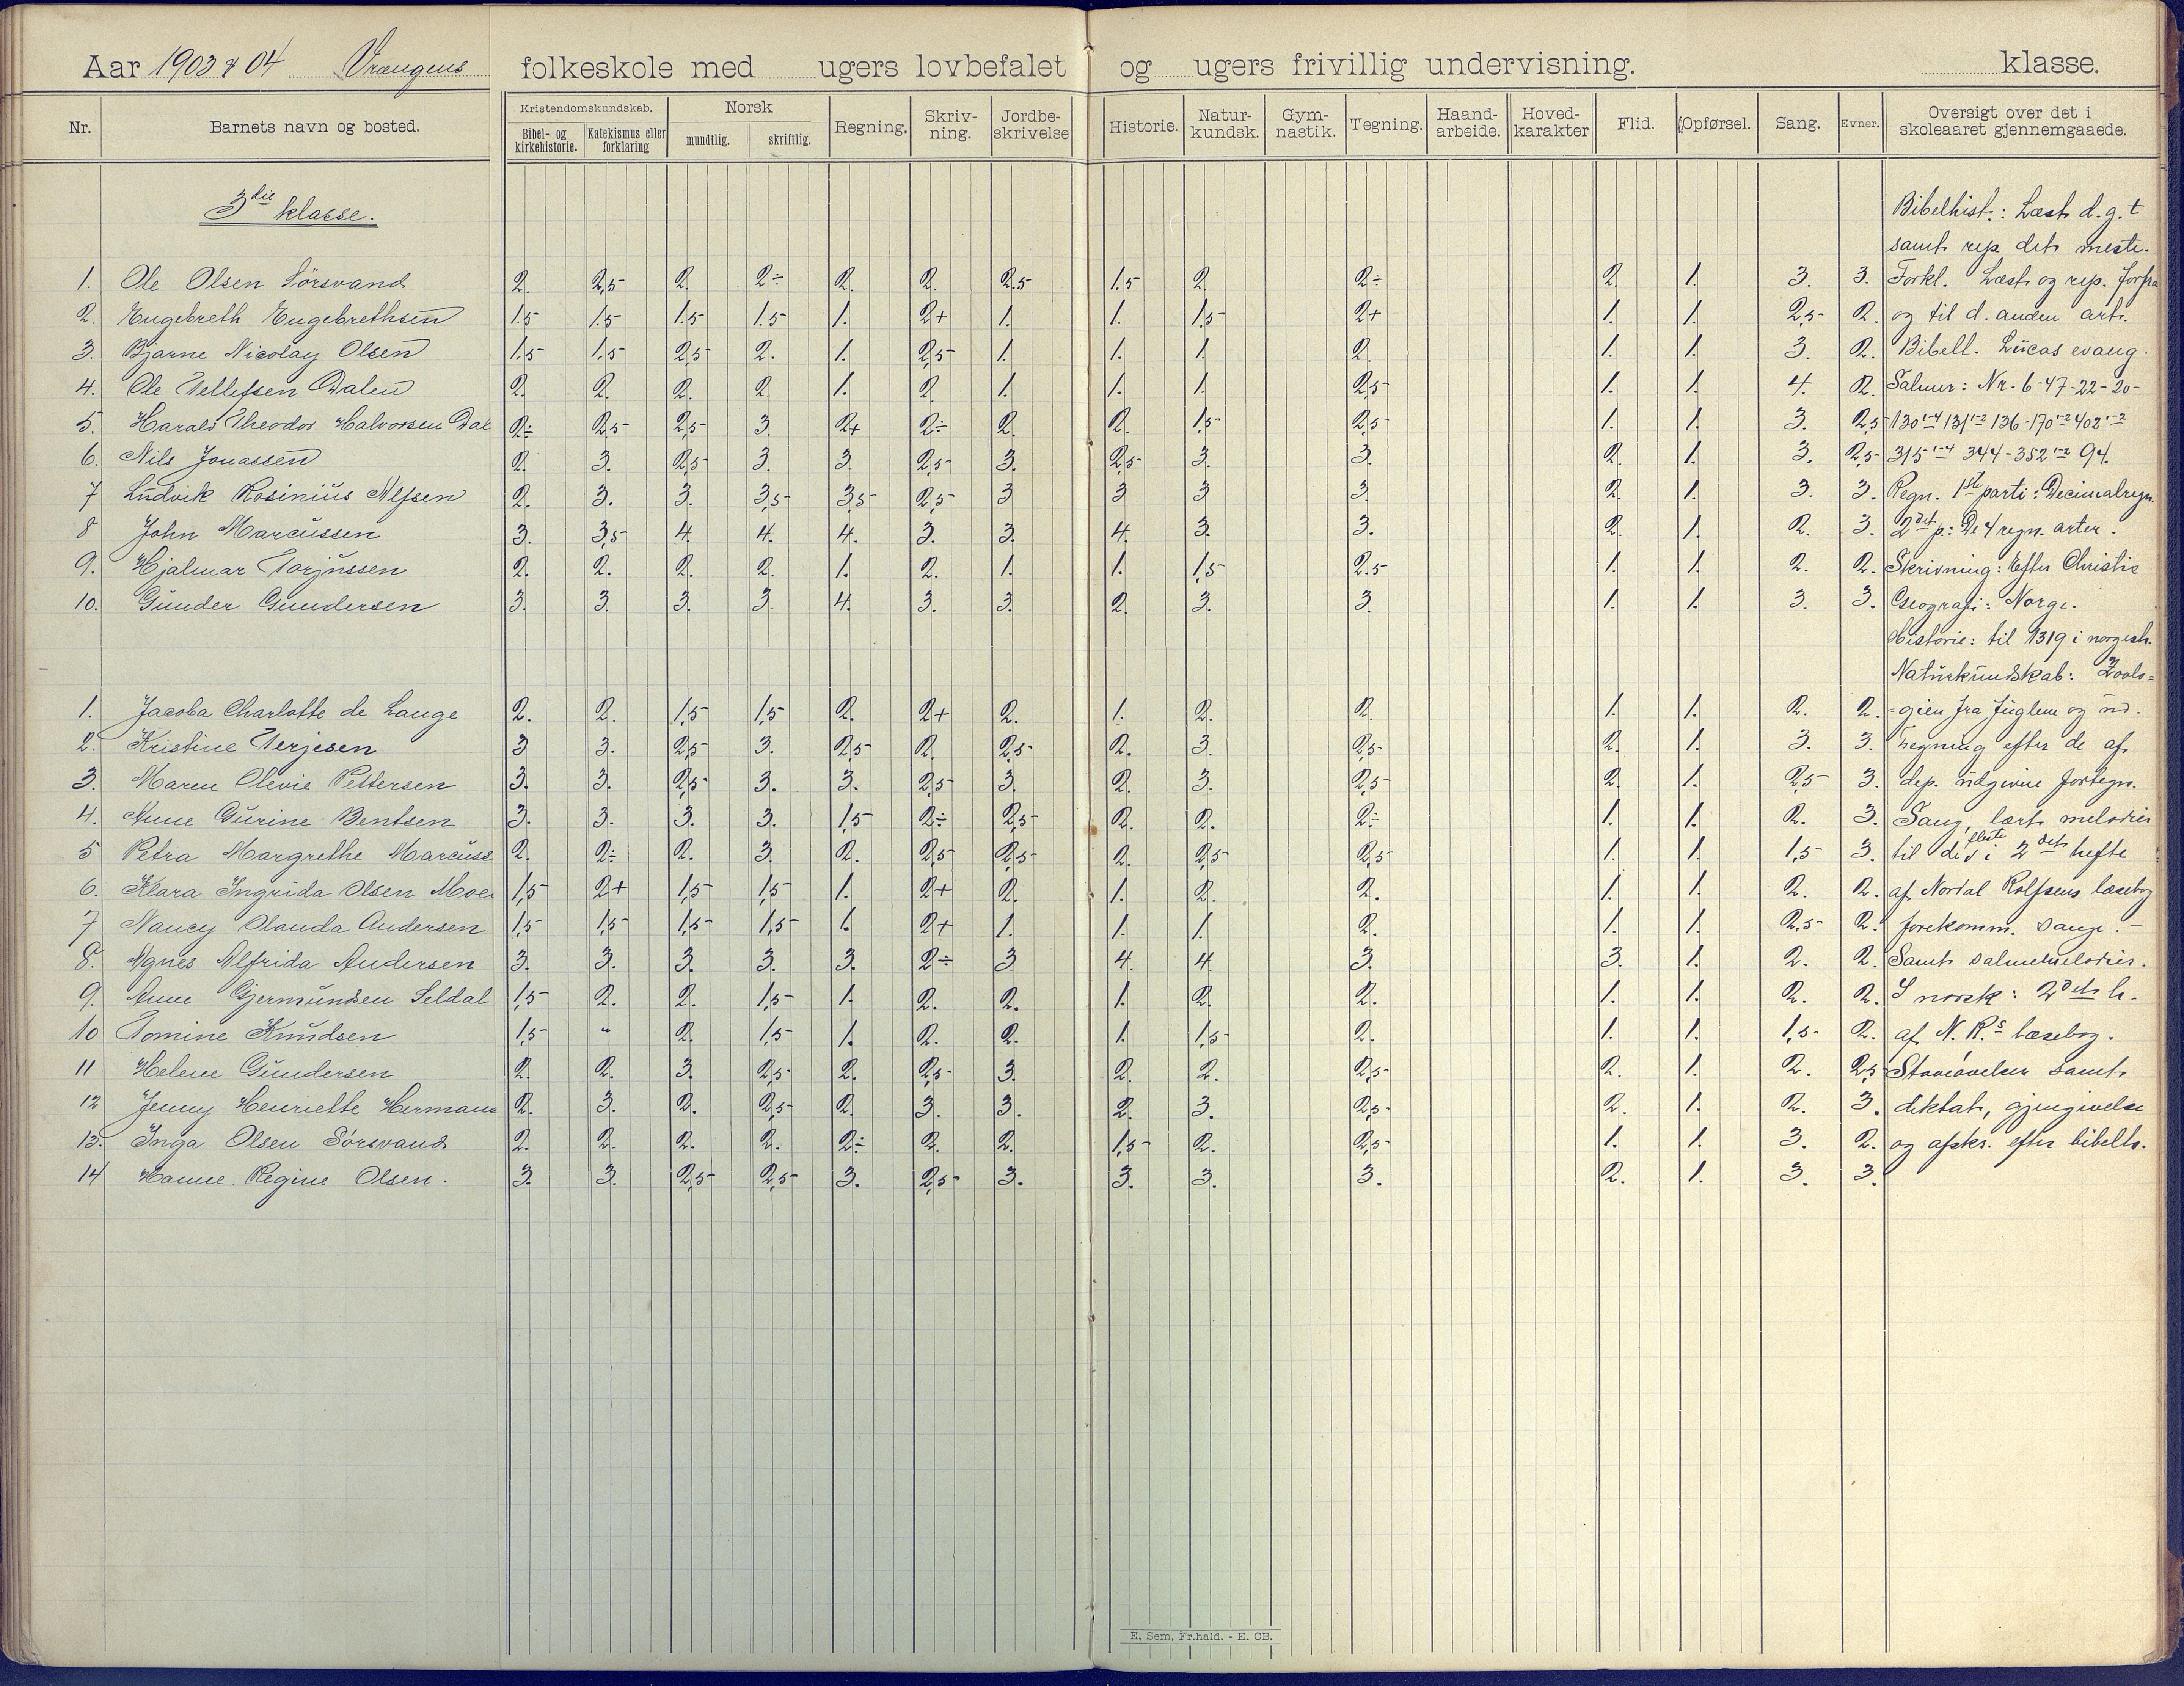 Aar 1903 & 04 Vrængens folkeskole med ugers lovbefalet og ugers frivillig undervisning. klasse.
Nr. Barnets navn og bosted. Kristendomskundskab. Bibel- og kirkehistorie. Katekismus eller forklaring Norsk mundtlig. skriftlig. Regning. Skriv-ning. Jordbe-skrivelse Historie. Natur-kundsk. Gym-nastik. Tegning. Haand-arbeide. Hoved-karakter Flid. Opførsel. Sang. Evner. Oversigt over det i skoleaaret gjennemgaaede.
3die klasse. Bibelhist.: Læst d.g.t
samt rep det meste.
1. Ole Olsen Sørsvand 2. 2,5 2. 2÷ 2. 2. 2.5 1.5 2. 2÷ 2. 1. 3. 3. Forkl. Læst og rep. forfra
2. Engebreth Engebrethsen 1.5 1.5 1.5 1.5 1. 2+ 1. 1. 1,5 2+ 1. 1. 2,5 2. og til d. anden art.
3. Bjarne Nicolay Olsen 1,5 1,5 2,5 2. 1. 2,5 1. 1. 1. 2. 1. 1. 3. 2. Bibell. Lucas evang.
4. Ole Tellefsen Dalen 2. 2. 2. 2. 1. 2. 1. 1. 1. 2,5 1. 1. 4. 2. Salmer: Nr. 6-47-22-20-
5. Harald Theodor Halvorsen Dal 2÷ 2,5 2,5 3. 2+ 2÷ 2. 2. 1,5 2,5 1. 1. 3. 2,5 130 1-4 131 1-2 136-170 1-2 402 1-2
6. Nils Jonassen 2. 3. 2,5 3. 3. 2,5 3. 2,5 3. 3. 2. 1. 3. 2,5 315 1-4 344-352 1-2 94.
7 Ludvik Rosinius Alfsen 2. 3. 3. 3,5 3,5 2,5 3 3 3 3 2. 1. 3. 3. Regn. 1ste parti: Decimalregn.
8 John Marcussen 3. 3,5 4. 4. 4. 3. 3. 4. 3. 3. 2. 1. 2. 3. 2det p.: De 4 regn. arter.
9. Hjalmar Torjussen 2. 2. 2. 2. 1. 2. 1. 1. 1,5 2.5 1. 1. 2. 2. Skrivning: Efter Christie
10. Gunder Gundersen 3. 3. 3. 3. 4. 3. 3. 2. 3. 3. 1. 1. 3. 3. Geografi: Norge.
Historie: til 1319 i norgesh.
Naturkundskab: Zoolo=
1. Jacoba Charlotte de Lange 2. 2. 1,5 1,5 2. 2+ 2. 1. 2. 2. 1. 1. 2. 2. =gien fra fuglene og ud.
2. Kristine Terjesen 3 3. 2,5 3. 2,5 2. 2,5 2. 3. 2,5 2. 1. 3. 3. Tegning efter de af
3. Maren Olevie Pettersen 3. 3. 2,5 3. 3. 2,5 3. 2. 3. 2,5 2. 1. 2,5 3. dep. udgivne fortegn.
4. Anne Gurine Bentsen 3. 3. 3. 3. 1,5 2÷ 2,5 2. 2. 2÷ 1. 1. 2. 3. Sang, lært melodier
5 Petra Margrethe Marcuss 2. 2÷ 2. 3. 2. 2,5 2,5 2. 2,5 2,5 1. 1. 1,5 3. til de fleste i 2det hefte
6. Klara Ingrida Olsen Moe 1,5 2+ 1,5 1,5 1. 2+ 2. 1. 2. 2. 1. 1. 2. 2. af Nordal Rolfsens læsebog
7 Nancy Olauda Andersen 1,5 1,5 1,5 1,5 1. 2+ 1. 1. 1. 2. 1. 1. 2,5 2. forekomm. sange.-
8. Agnes Alfrida Andersen 3. 3. 3. 3. 3. 2÷ 3 4. 4. 3. 3. 1. 2. 2. Samt salmemelodier.
9. Anne Gjermundsen Seldal 1,5 2. 2. 1,5 1. 2. 2. 1. 2. 2. 1. 1. 2. 2. I norsk: 2det h.
10 Tomine Knudsen 1,5 " 2. 1,5 1. 2. 2. 1. 1,5 2. 1. 1. 1,5 2. af N. R.s læsebog.
11 Helene Gundersen 2. 2. 3. 2,5 2. 2,5 3. 2. 2. 2,5 2. 1. 2. 2,5 Staveøvelser samt
12 Jenny Henriette Hermans 2. 3. 2. 2,5 2. 3. 3. 2. 3. 2,5 2. 1. 2. 3. diktat, gjengivelse
13. Inga Olsen Sørsvand 2. 2. 2. 2. 2÷ 2. 2. 1,5 2. 2,5 1. 1. 3. 2. og afskr. efter bibelh.
14 Hanne Regine Olsen. 3. 3. 2,5 2,5 3. 2,5 3. 3. 3. 3. 2. 1. 3. 3.
E. Sem, Fr.hald. - E. CB.